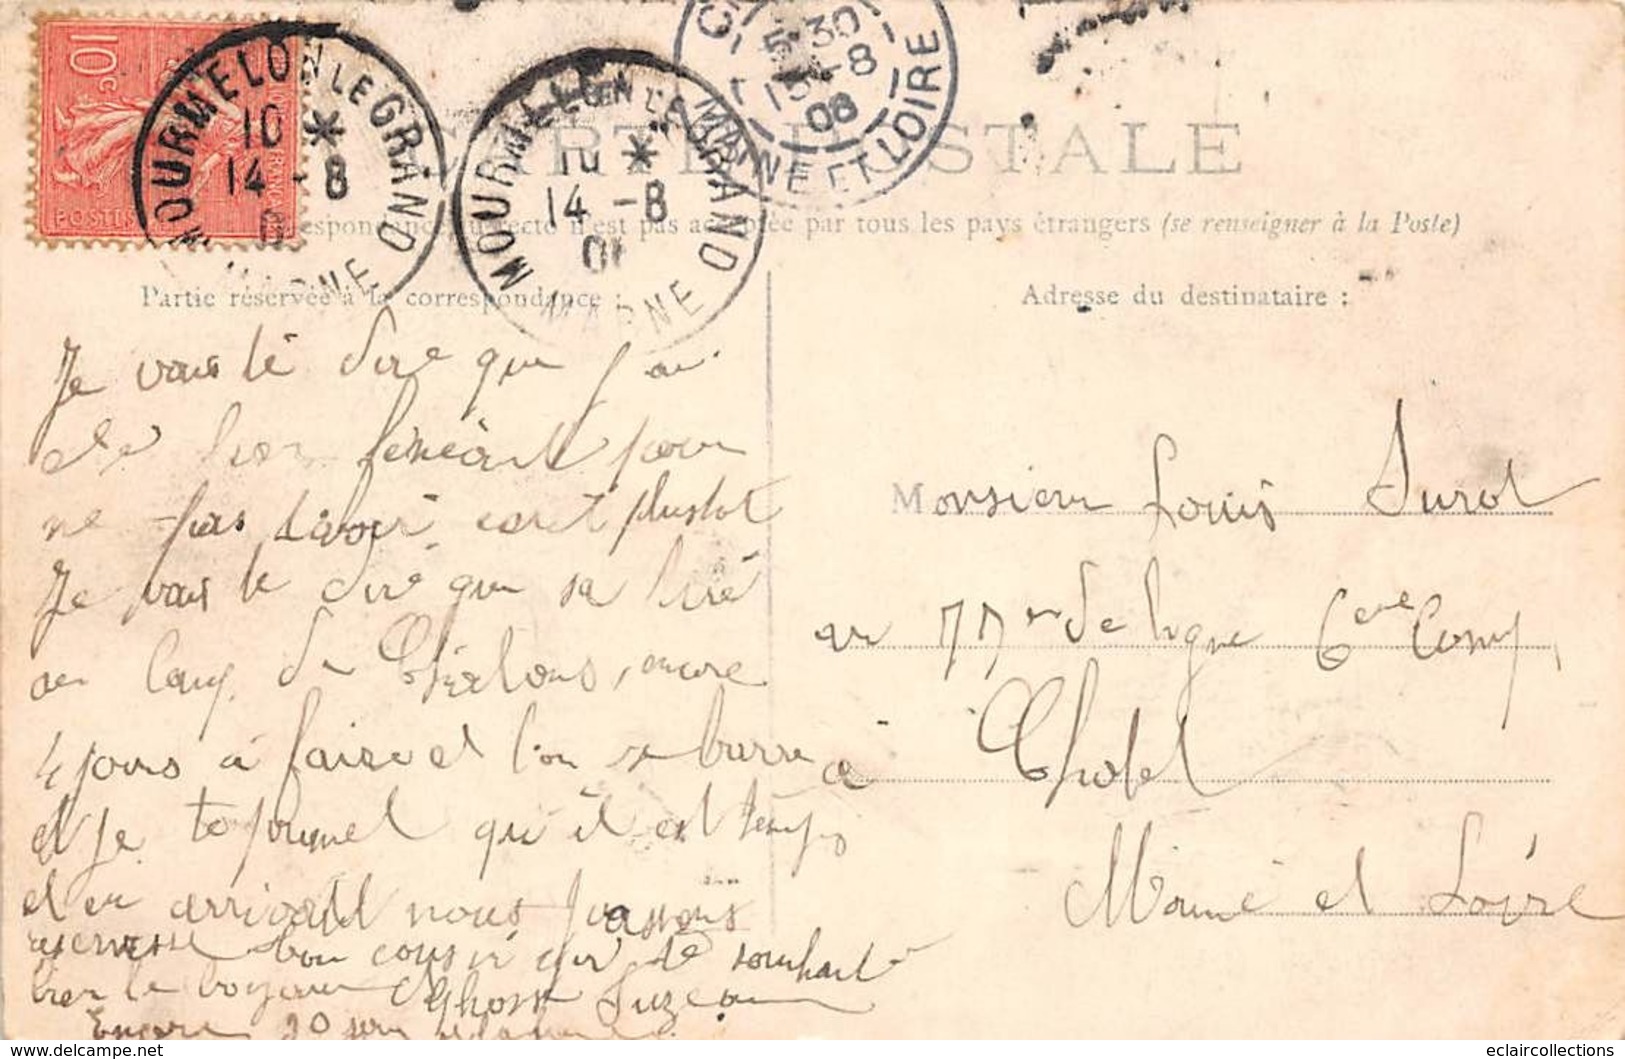 10c
POSTES
MOURMELON LE GRAND
10 *
14 - 8
MARNE
MOURMELON LE GRAND
10 *
14 - 8
MARNE
5 30
15 - 8
08
MAINE ET LOIRE
CARTE POSTALE
correspondance au recto n'est pas acceptée par tous les pays étrangers (se renseigner à la Poste)
Partie réservée à la correspondance :
Je vais te dire que j'ai
été bien fénéant pour
ne pas t'avoir écrit plustot
Je vais te dire que sa tire
au Camp de Châlons, encore
4 jours à faire et l'on se barre
et je te promet qu'il est temps
et en arrivant nous passons
réserviste
bien le
Encore 20
Adresse du destinataire :
Monsieur Louis Surol
au 77 de ligne 6eme Comp,
à Cholet
Maine et Loire
eclaircollections